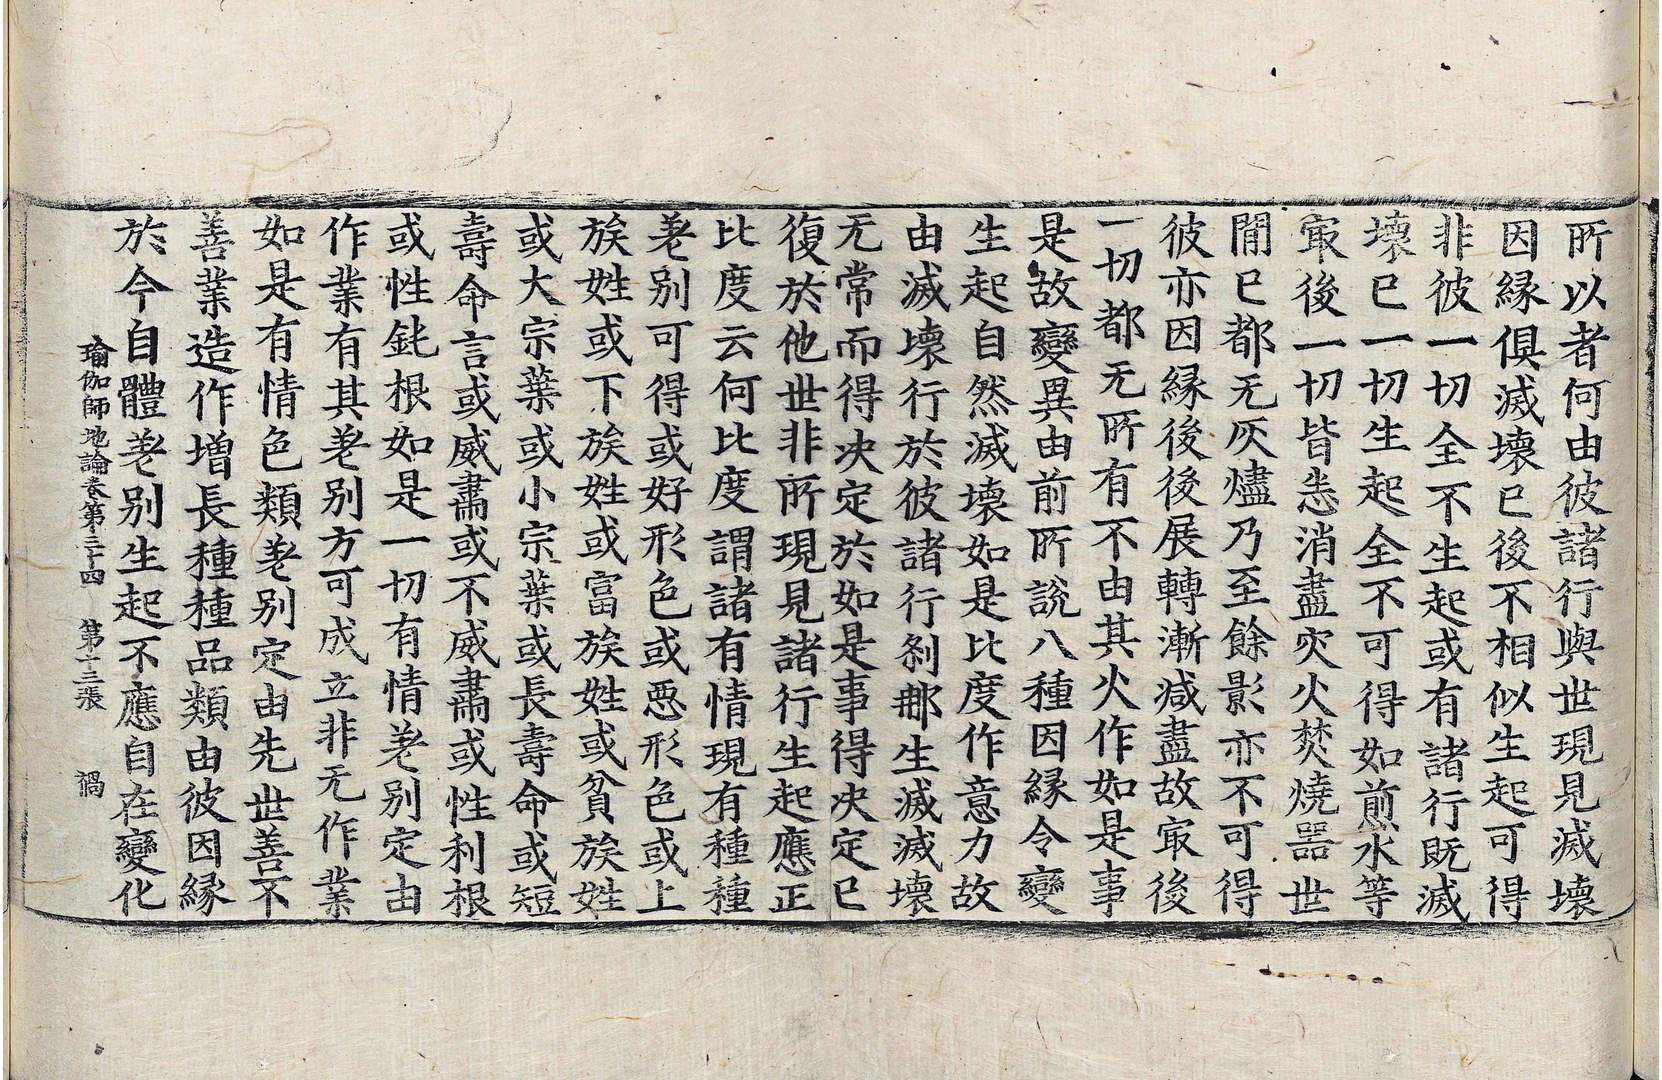 所以者何由彼諸行與世現見滅壞
因緣俱滅壞已後不相似生起可得
非彼一切全不生起或有諸行既滅
壞已一切生起全不可得如煎水等
㝡後一切皆悉消盡灾火焚燒器世
閒已都无灰燼乃至餘影亦不可得
彼亦因緣後後展轉漸減盡故㝡後
一切都无所有不由其火作如是事
是故變異由前所說八種因緣令變
生起自然滅壞如是比度作意力故
由滅壞行於彼諸行刹那生滅滅壞
无常而得决定於如是事得决定已
復於他世非所現見諸行生起應正
比度云何比度謂諸有情現有種種
差别可得或好形色或惡形色或上
族姓或下族姓或富族姓或貧族姓
或大宗葉或小宗葉或長壽命或短
壽命言或威肅或不威肅或性利根
或性鈍根如是一切有情差别定由
作業有其差别方可成立非无作業
如是有情色類差别定由先世善不
善業造作增長種種品類由彼因緣
於今自體差别生起不應自在變化
瑜伽師地論卷第三十四 第十三張 禍